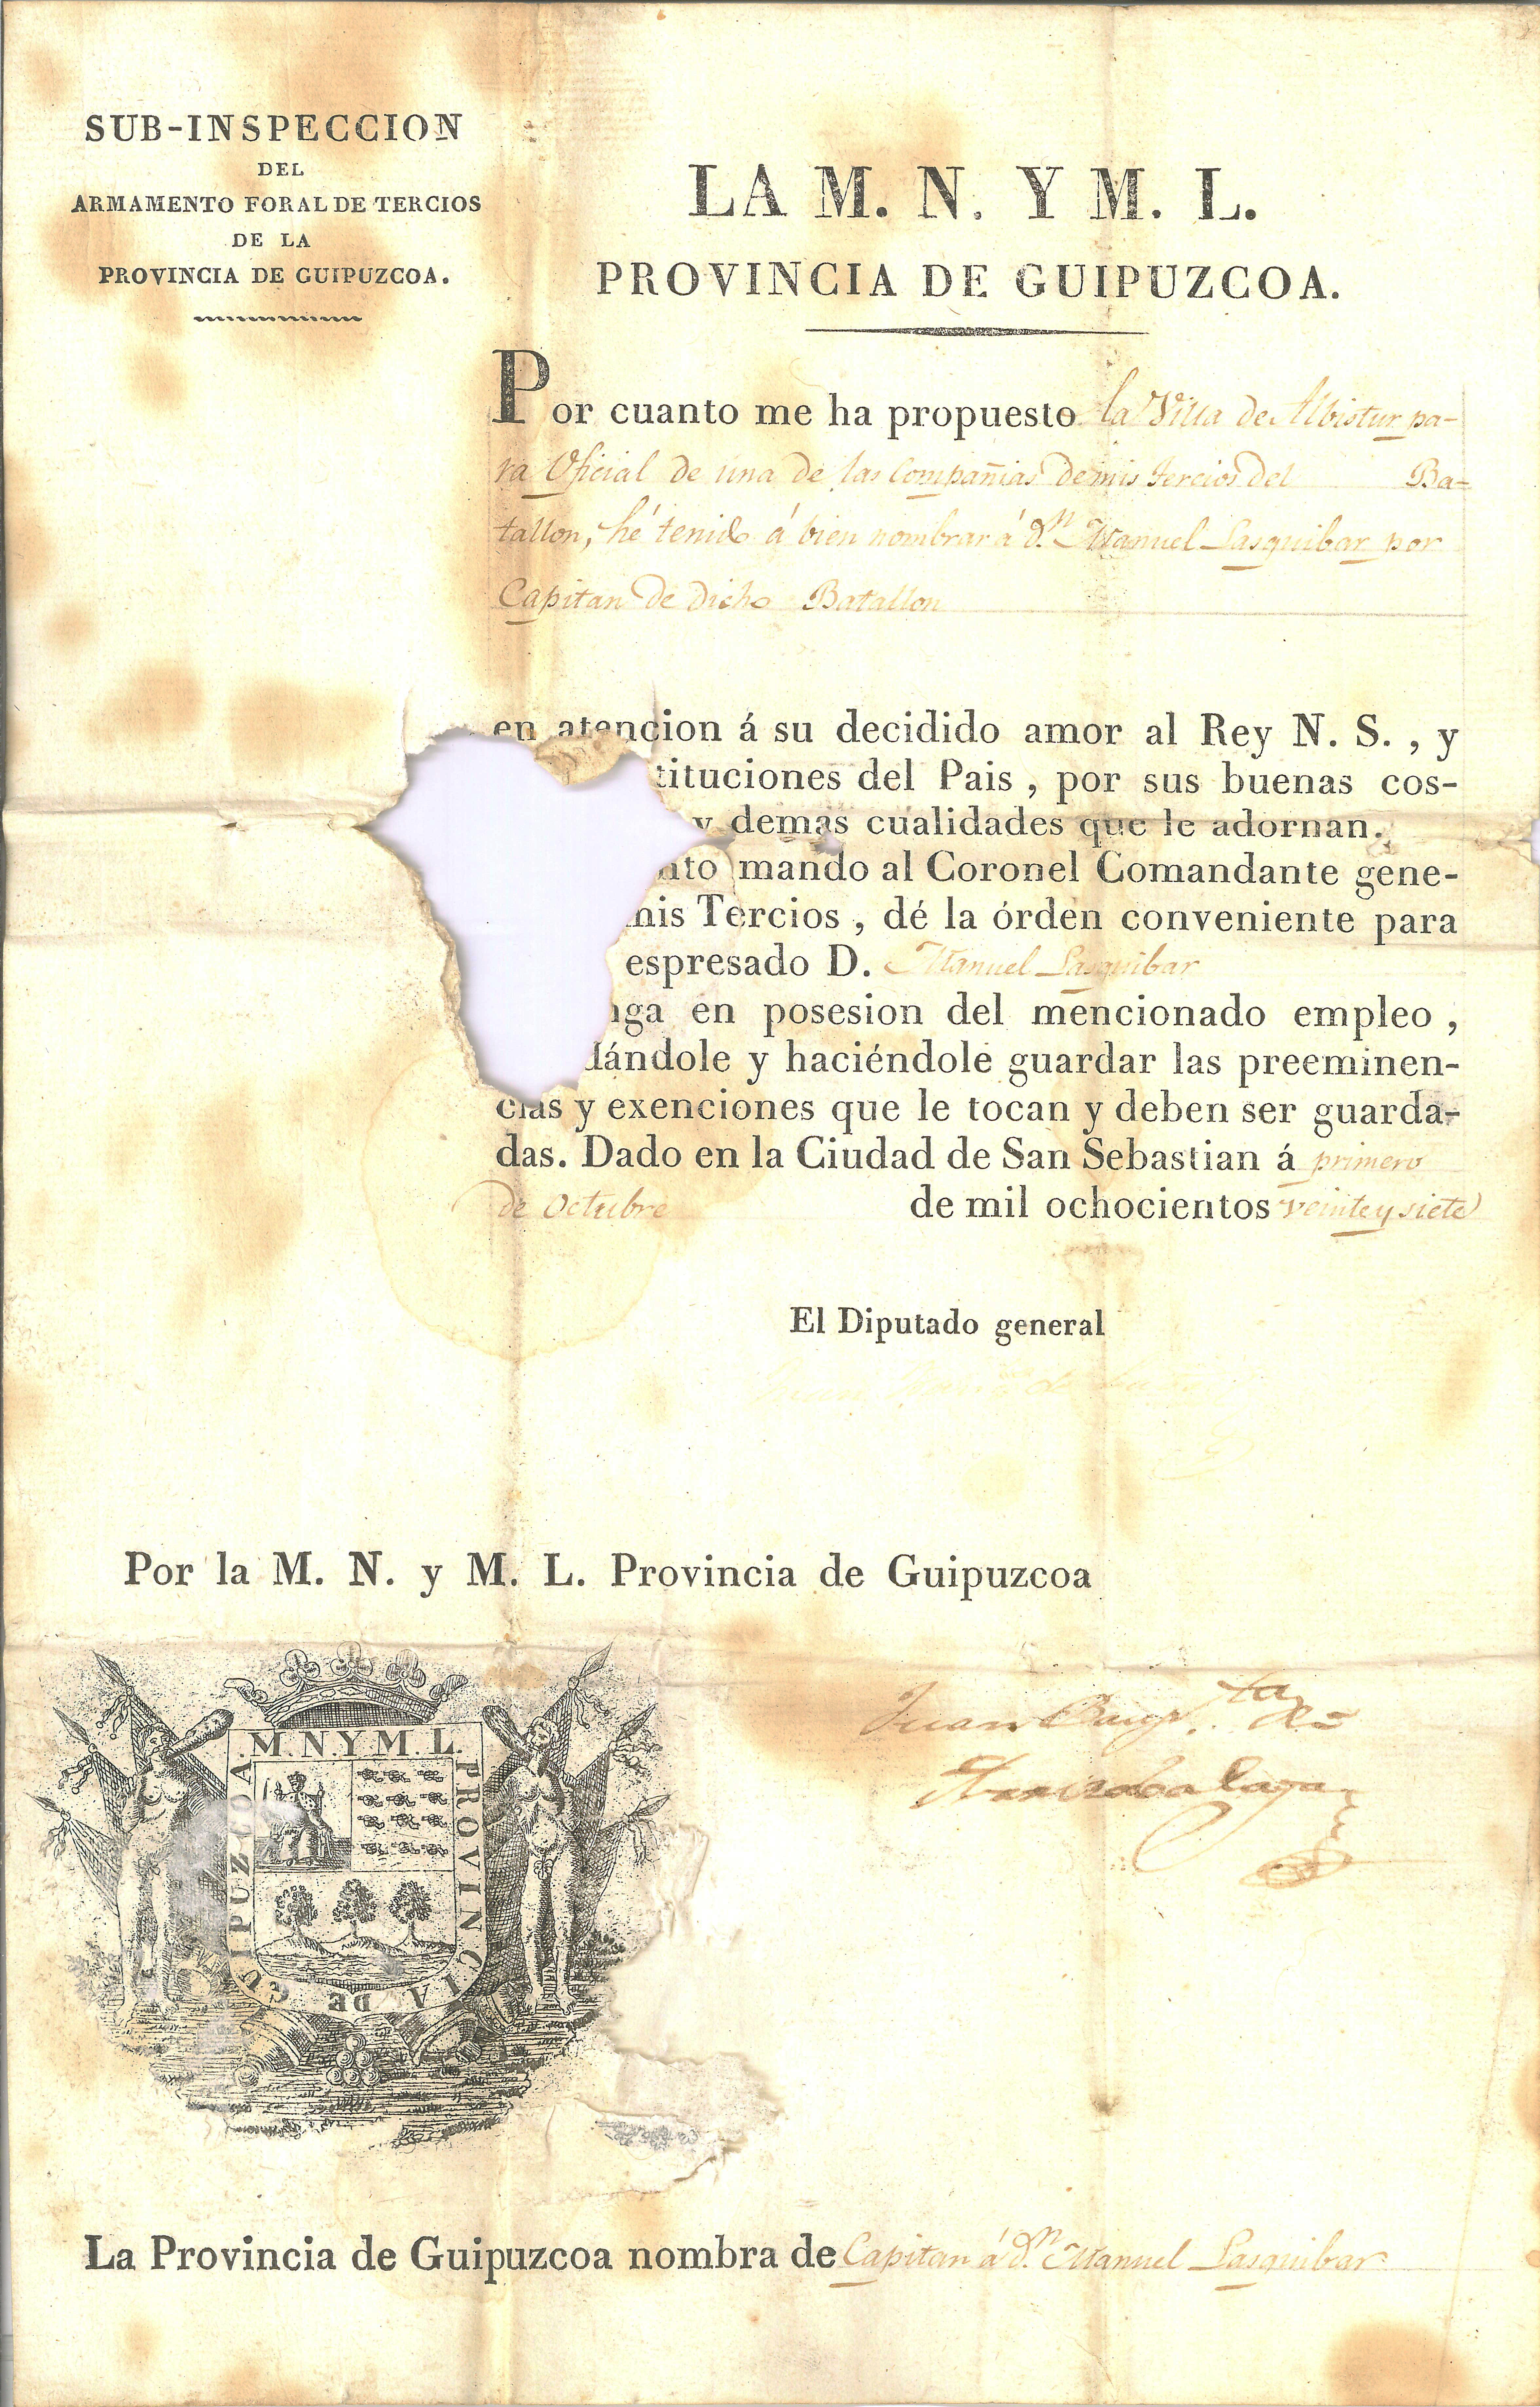 SUB-INSPECCION
DEL
ARMAMENTO FORAL DE TERCIOS
DE LA
PROVINCIA DE GUIPUZCOA.
LA M. N. Y M. L.
PROVINCIA DE GUIPUZCOA.
Por cuanto me ha propuesto la Villa de Albistur pa-
ra Oficial de una de las Compañias de mis tercios del Ba-
tallon, hé tenido á bien nombrar á d.n Manuel Lasquibar por
Capitan de dicho Batallon
en atencion á su decidido amor al Rey N. S. , y
tituciones del Pais , por sus buenas cos-
y demas cualidades que le adornan.
nto mando al Coronel Comandante gene-
mis Tercios , dé la órden conveniente para
espresado D. Manuel Lasquibar
nga en posesion del mencionado empleo ,
dándole y haciéndole guardar las preeminen-
cias y exenciones que le tocan y deben ser guarda-
das. Dado en la Ciudad de San Sebastian á primero
de Octubre de mil ochocientos veinte y siete
El Diputado general
Por la M. N. y M. L. Provincia de Guipuzcoa
M. N. Y M. L. PROVINCIA DE GUIPUZCOA
Juan Baup.ta
La Provincia de Guipuzcoa nombra de Capitan á d.n Manuel Lasquibar